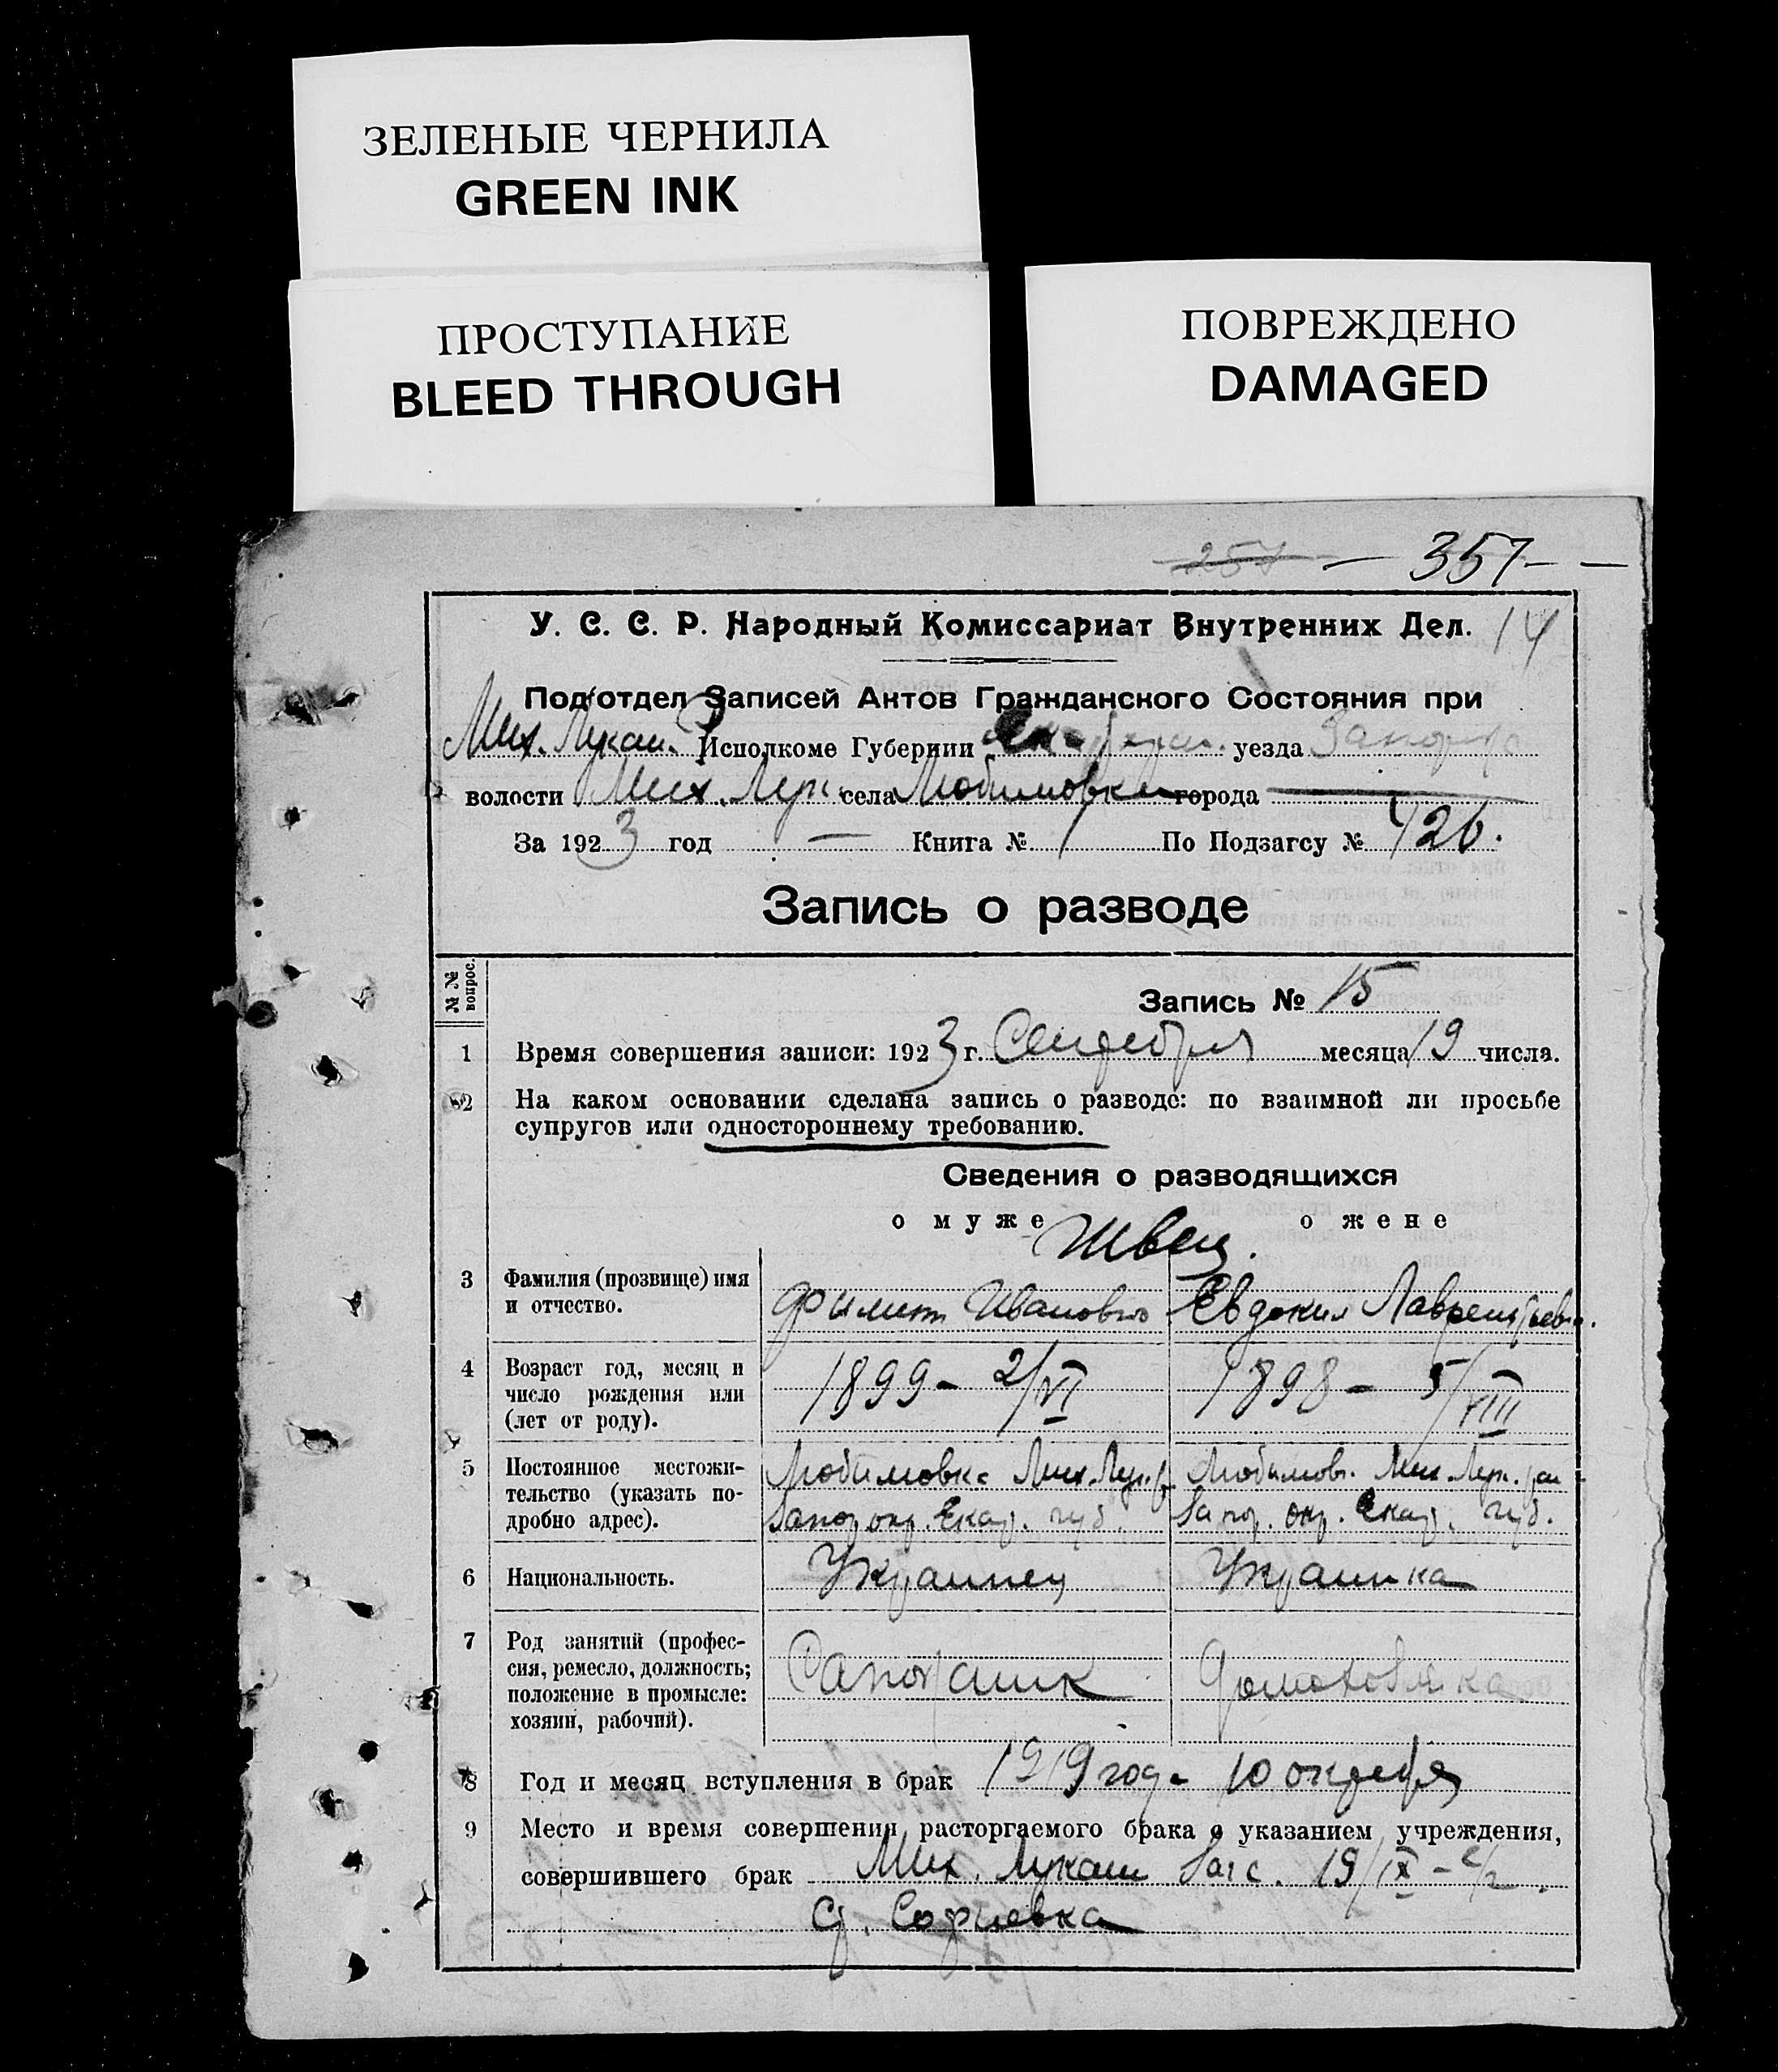 ЗЕЛЕНЫЕ ЧЕРНИЛА
GREEN INK
ПРОСТУПАНИЕ
BLEED THROUGH
ПОВРЕЖДЕНО
DAMAGED
257 — 357 — —
У. С. С. Р. Народный Комиссариат Внутренних Дел. 14
Подотдел Записей Актов Гражданского Состояния при
Мих. Лукаш. Исполкоме Губернии уезда
волости Мих. Лук. села Любимовки города —
За 1923 год — Книга № 1 По Подзагсу № 426.
Запись о разводе
№ № вопрос.
Запись № 15
1 Время совершения записи: 1923 г. Сентебря месяца 19 числа.
2 На каком основании сделана запись о разводе: по взаимной ли просьбе
супругов или одностороннему требованию.
Сведения о разводящихся
о муже о жене
Швец.
3 Фамилия (прозвище) имя
и отчество.
Иванович Евдокия Лаврентьевна.
4 Возраст год, месяц и
число рождения или
(лет от роду).
1899 - 2/VI 1898 - 5/VIII
5 Постоянное местожи-
тельство (указать по-
дробно адрес).
Любимовка Мих. Лук. р. Любимов. Мих. Лук. рай
Запор. окр. Екат. губ. Запор. окр. Екат. губ.
6 Национальность.
Украинец Украинка
7 Род занятий (профес-
сия, ремесло, должность;
положение в промысле:
хозяин, рабочий).
Сапожник Домохозяйка
8 Год и месяц вступления в брак 1919 год. 10 октебря
9 Место и время совершения расторгаемого брака с указанием учреждения,
совершившего брак Мих. Лукаш Загс. 19/IX -
Софиевка